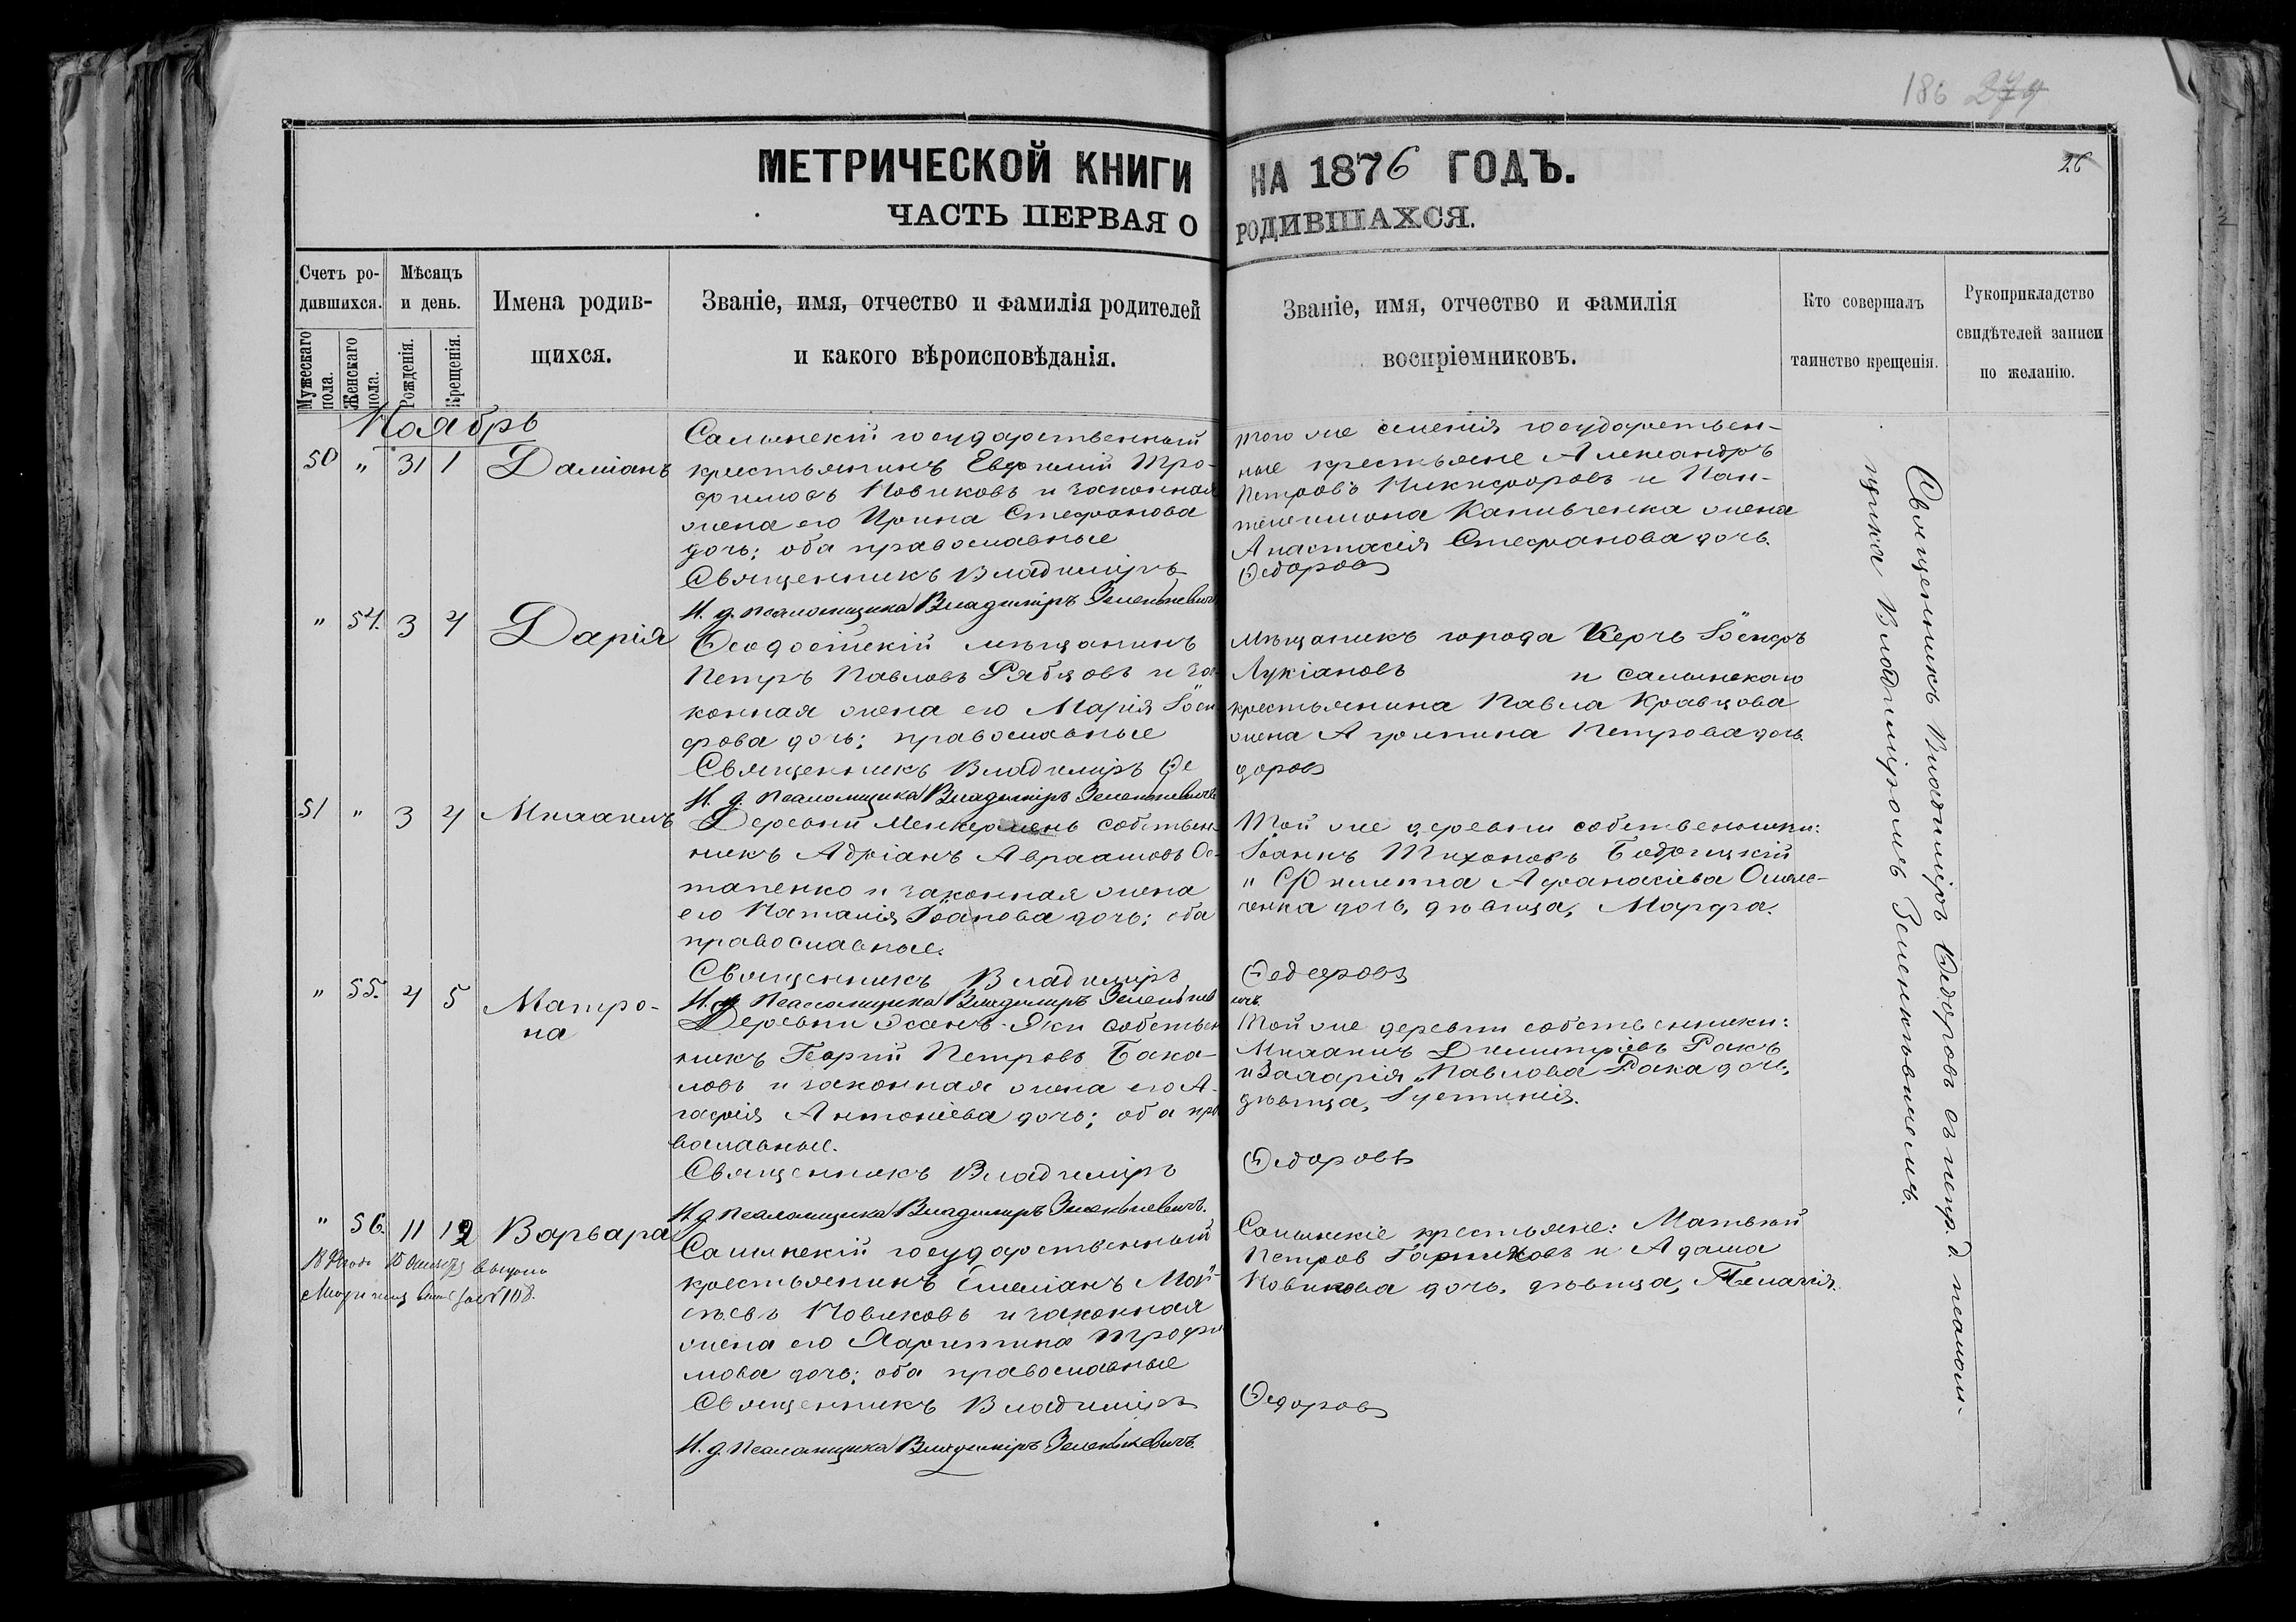 186 279
26
МЕТРИЧЕСКОЙ КНИГИ НА 1876 ГОДЪ.
ЧАСТЬ ПЕРВАЯ О РОДИВШАХСЯ.
Счетъ ро-
дившихся.
Мужескаго пола.
Женскаго пола.
Мѣсяцъ
и день.
Рожденія.
Крещенія.
Имена родив-
щихся.
Званіе, имя, отчество и фамилія родителей
и какого вѣроисповѣданія.
Званіе, имя, отчество и фамилія
воспріемниковъ.
Кто совершалъ
таинство крещенія.
Рукоприкладство
свидѣтелей записи
по желанію.
Ноябрь
50 " 31 1 Даміанъ
Салынскій государственный
крестьянинъ Евфимій Тро-
фимовъ Новиковъ и законная
жена его Ирина Стефанова
дочь; оба православные
Священникъ Владиміръ
И. д. псаломщика Владиміръ Зеленкевичъ
того же селенія государствен-
ные крестьяне Александръ
Петровъ Никифоровъ и Пан-
телеимона Капивченка жена
Анастасія Стефанова дочь.
Ѳедоровъ
" 54. 3 4 Дарія
Ѳеодосійскій мѣщанинъ
Петръ Павловъ Рябцовъ и за-
конная жена его Марія Іоси
фова дочь; православные
Священникъ Владиміръ Ѳе
И. д. псаломщика Владиміръ Зеленкевичъ
Мѣщанинъ города Керчь Іосифъ
Лукіановъ и салынскаго
крестьянина Павла Кравцова
жена Агрипина Петрова дочь.
доровъ
51 " 3 4 Михаилъ
Деревни Менкермень собствен-
никъ Адріанъ Авраамовъ Ос-
тапенко и законная жена
его Наталія Іоанова дочь; оба
православные.
Священникъ Владиміръ
И. д. псаломщика Владиміръ Зеленкев
Той же деревни собственники:
Іоаннъ Тихоновъ
Афанасіева
дочь, дѣвица, Марфа.
Ѳедоровъ
ичъ
" 55. 4 5 Матро-
на
Деревни собствен
никъ Георгій Петровъ Бака-
ловъ и законная жена его А-
гафія Антоніева дочь; оба пра
вославные.
Священникъ Владиміръ
И. д. псаломщика Владиміръ Зеленкевичъ.
Той же деревни собственники:
Михаилъ Димитріевъ Ракъ
и Захарія Павлова Рака дочь,
дѣвица, Іустинія.
Ѳедоровъ
" 56. 11 12 Варвара
Салынскій государственный
крестьянинъ Емеліанъ Мой-
сѣевъ Новиковъ и законная
жена его Харитина Трофи
мова дочь; оба православные
Священникъ Владиміръ
И. д. псаломщика Владиміръ Зеленкевичъ.
Салынскіе крестьяне: Матвѣй
Петров и Адама
Новикова дочь, дѣвица, Пелагія.
Ѳедоровъ
года выдана
№ 108.
Священникъ Владиміръ Ѳедоровъ съ испр. д. псаломъ-
щика Владиміромъ Зеленкѣвичемъ.